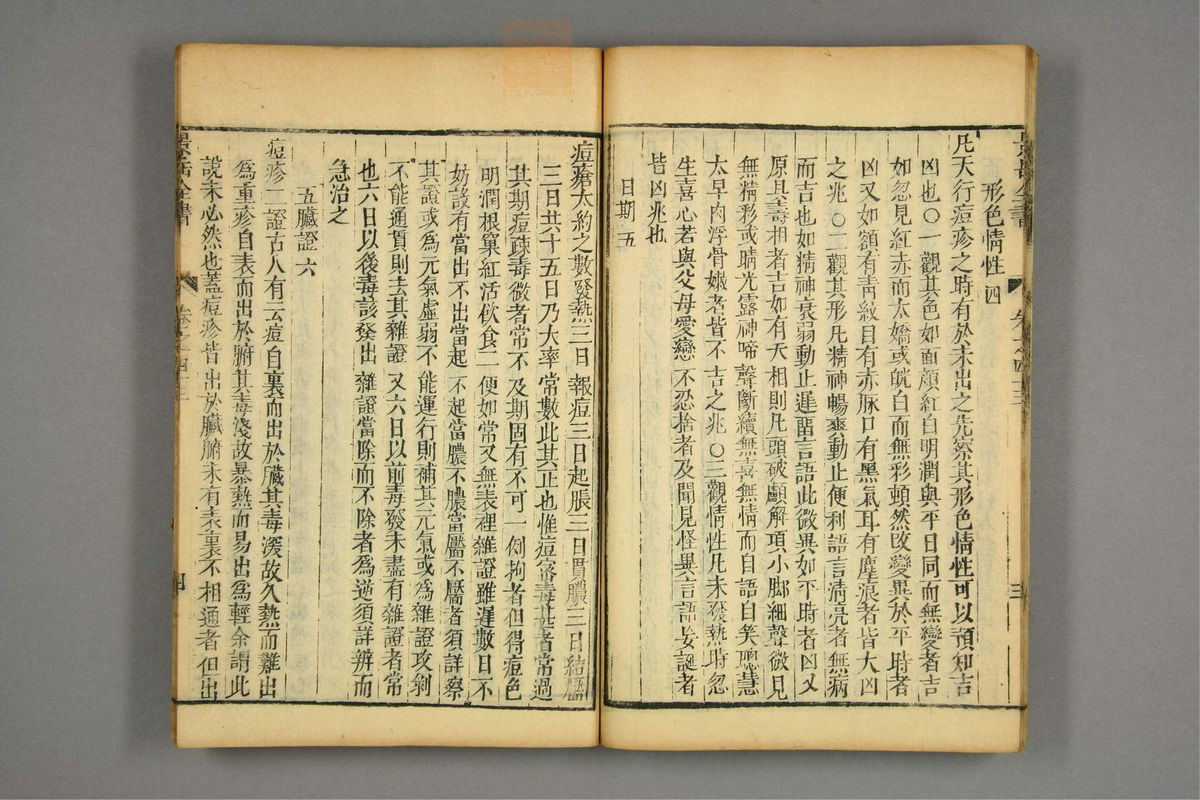 形色情性四
凡天行痘疹之時有於未出之先察其形色情性可以預知吉
凶也〇一觀其色如面顏紅白明潤與平日同而無變者吉
如忽見紅赤而太嬌或皖白而無彩頓然改變異於平時者
凶又如額有青紋目有赤脉口有黑氣耳有塵浪者皆大凶
之兆〇二觀其形凡精神暢爽動止便利語言清亮者無病
而吉也如精神衰弱動止遲留言語此微異如平時者凶又
原具壽相者吉如有夭相則凡頭破顱解項小脚細聲微見
無精彩或睛光露神啼聲斷續無喜無情而自語自矣聰慧
太早肉浮骨嫩者皆不吉之兆〇三觀情性凡未發熱時忽
生喜心若與父母愛戀不忍捨者及聞見怪異言語妄誕者
皆凶兆也
日期五
痘瘡大約之數發熱三日報痘三日起脹三日貫膿三日結靨
三日共十五日乃大率常數此其正也惟痘密毒甚者常過
其期痘疎毒微者常不及期固有不可一例拘者但得痘色
明潤根窠紅活飲食二便如常又無表裡雜證雖遲數日不
妨設有當出不出當起不起當膿不膿當靨不靨者須詳察
其證或為元氣虛弱不能運行則補其元氣或為雜證攻剝
不能通貫則去其雜證又六日以前毒發未盡有雜證者常
也六日以後毒該發出雜證當除而不除者為逆須詳辨而
急治之
五臟證六
痘疹二證古人有云痘自裏而出於臟其毒深故久熱而難出
為重疹自表而出於腑其毒淺故暴熱而易出為輕余謂此
說未必然也蓋痘疹皆出於臟腑未有表裏不相通者但出
景岳全書
卷之四十三
三
景岳全書
卷之四十三
四